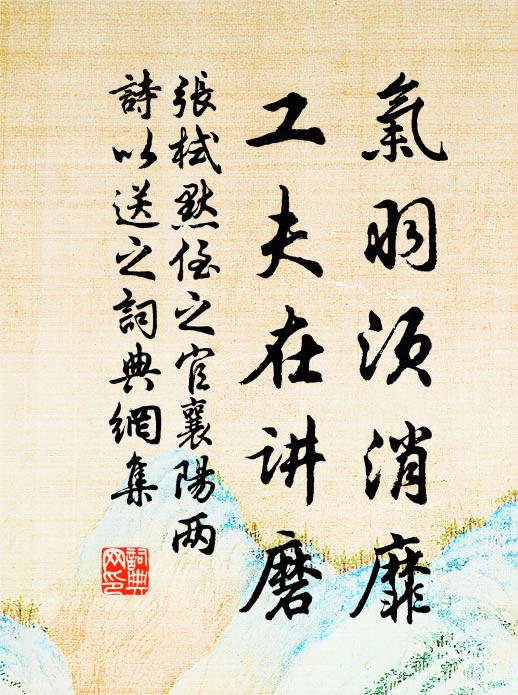 氣羽须消靡
工夫在讲磨
張栻默侄之官襄陽两
詩以送之詞典網集
詞典
网印